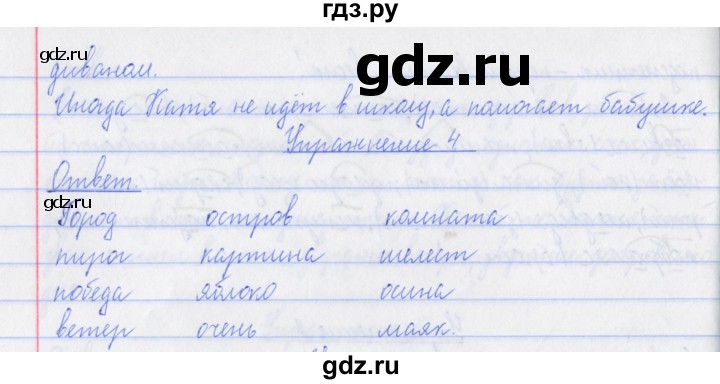 гдз.ру
gdz.ru
gdz.ru
диваном.
Иногда Катя не идёт в школу, а помогает бабушке.
Упражнение 4.
Ответ.
gdz.ru
Город остров комната
пирог картина шелест
победа яблоко осина
ветер очень маяк.
gdz.ru